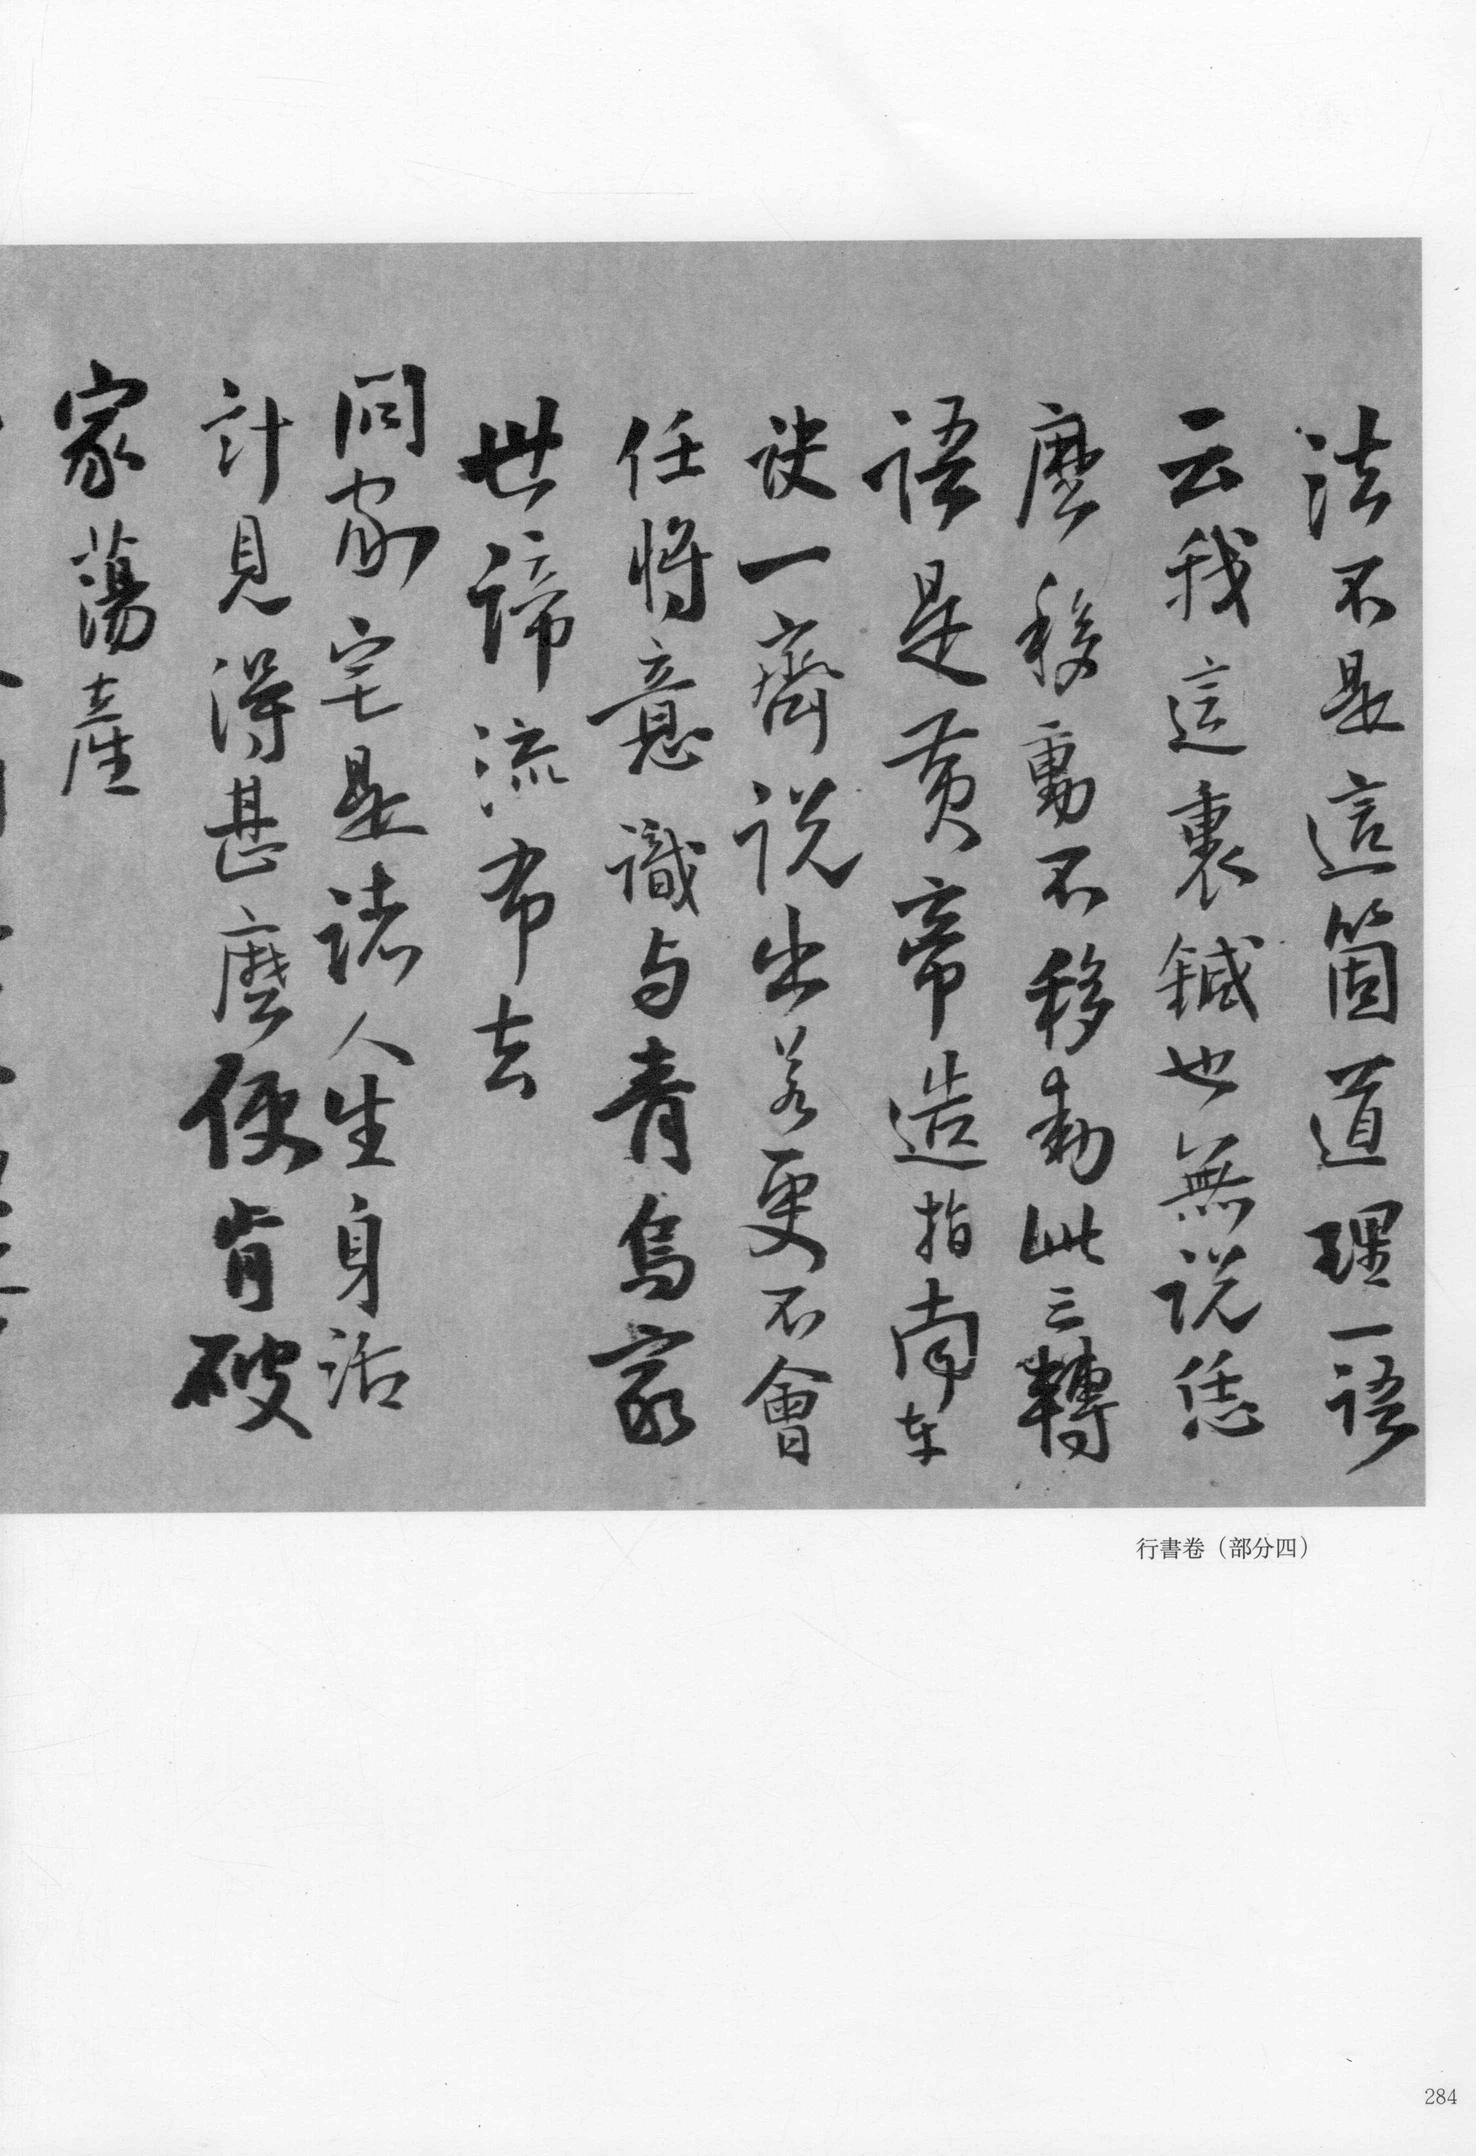 法不是這箇道理一語
云我這裏鍼也無説恁
麼移動不移動此三轉
語是黄帝造指南車
訣一齊説出若更不會
任將意識与青烏家
世諦流布去
問家宅是諸人生身活
計見得甚麼便肯破
家蕩産
行書卷（部分四）
284